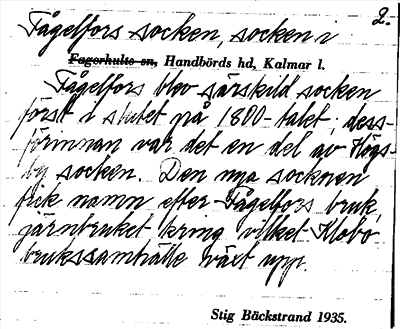 2.
Fågelfors socken, socken i
Fagerhults sn, Handbörds hd, Kalmar l.
Fågelfors blev särskild socken
först i slutet på 1800-talet; dess-
förinnan var det en del av Högs-
by socken. Den nya socknen
fick namn efter Fågelfors bruk,
järnbruket kring vilket Klobo
brukssamhälle växt upp.
Stig Bäckstrand 1935.